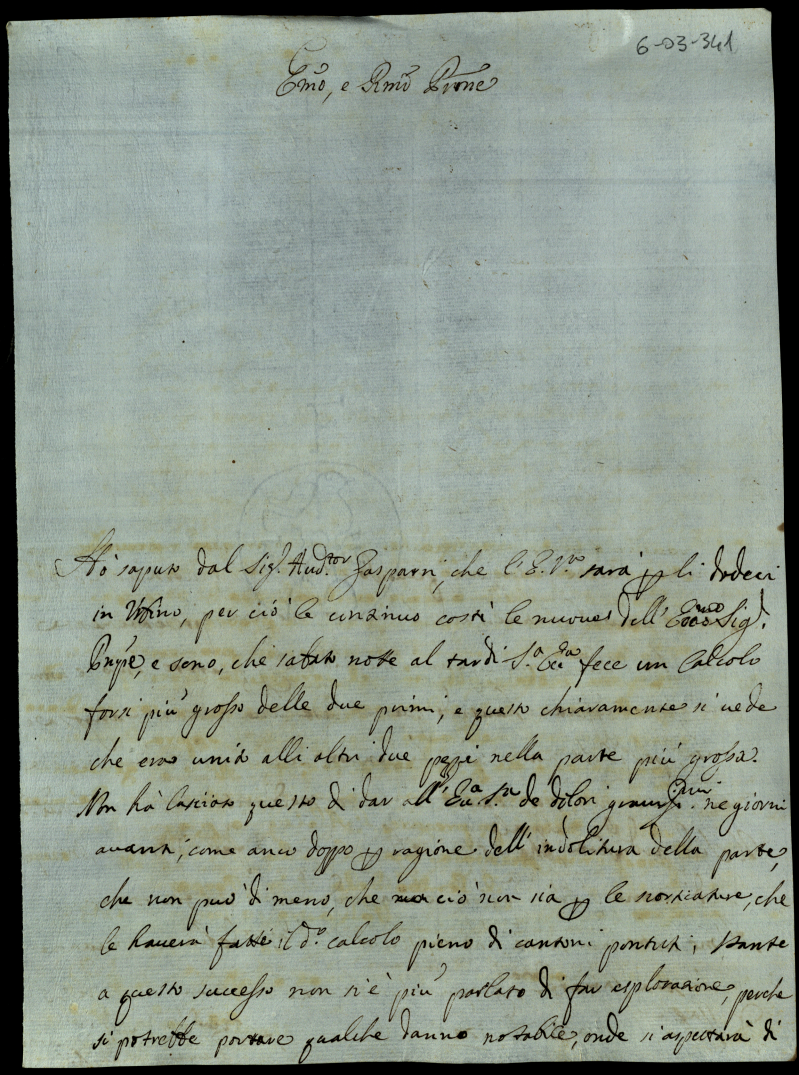 6-03-341
Emo, e Rmo Prone
Hò saputo dal Sig.r Aud.tor Gasparri, che l'E. V.ra sarà p li dodeci
in Urbino, per ciò le continuo costì le nuoue dell' Ecc.mo Sig.r
Prnpe, e sono, che sabato notte al tardi S.a Ecc.a fece un Calcolo
forsi più grosso delle due primi, e questo chiaramente si uede
che era unito alli altri due pezzi nella parte più grossa.
Non hà lasciato questo di dar all' Ecc.a S.a de dolori grauissimi ne giorni
auanti, come anco doppo p ragione dell' indolitura della parte,
che non può di meno, che ciò non sia p le scorticature, che
le hauerà fatte il d.o calcolo pieno di cantoni pontuti, stante
a questo successo non si è più parlato di far esplorazione, perche
si potrebbe portare qualche danno notabile, onde si aspettarà di